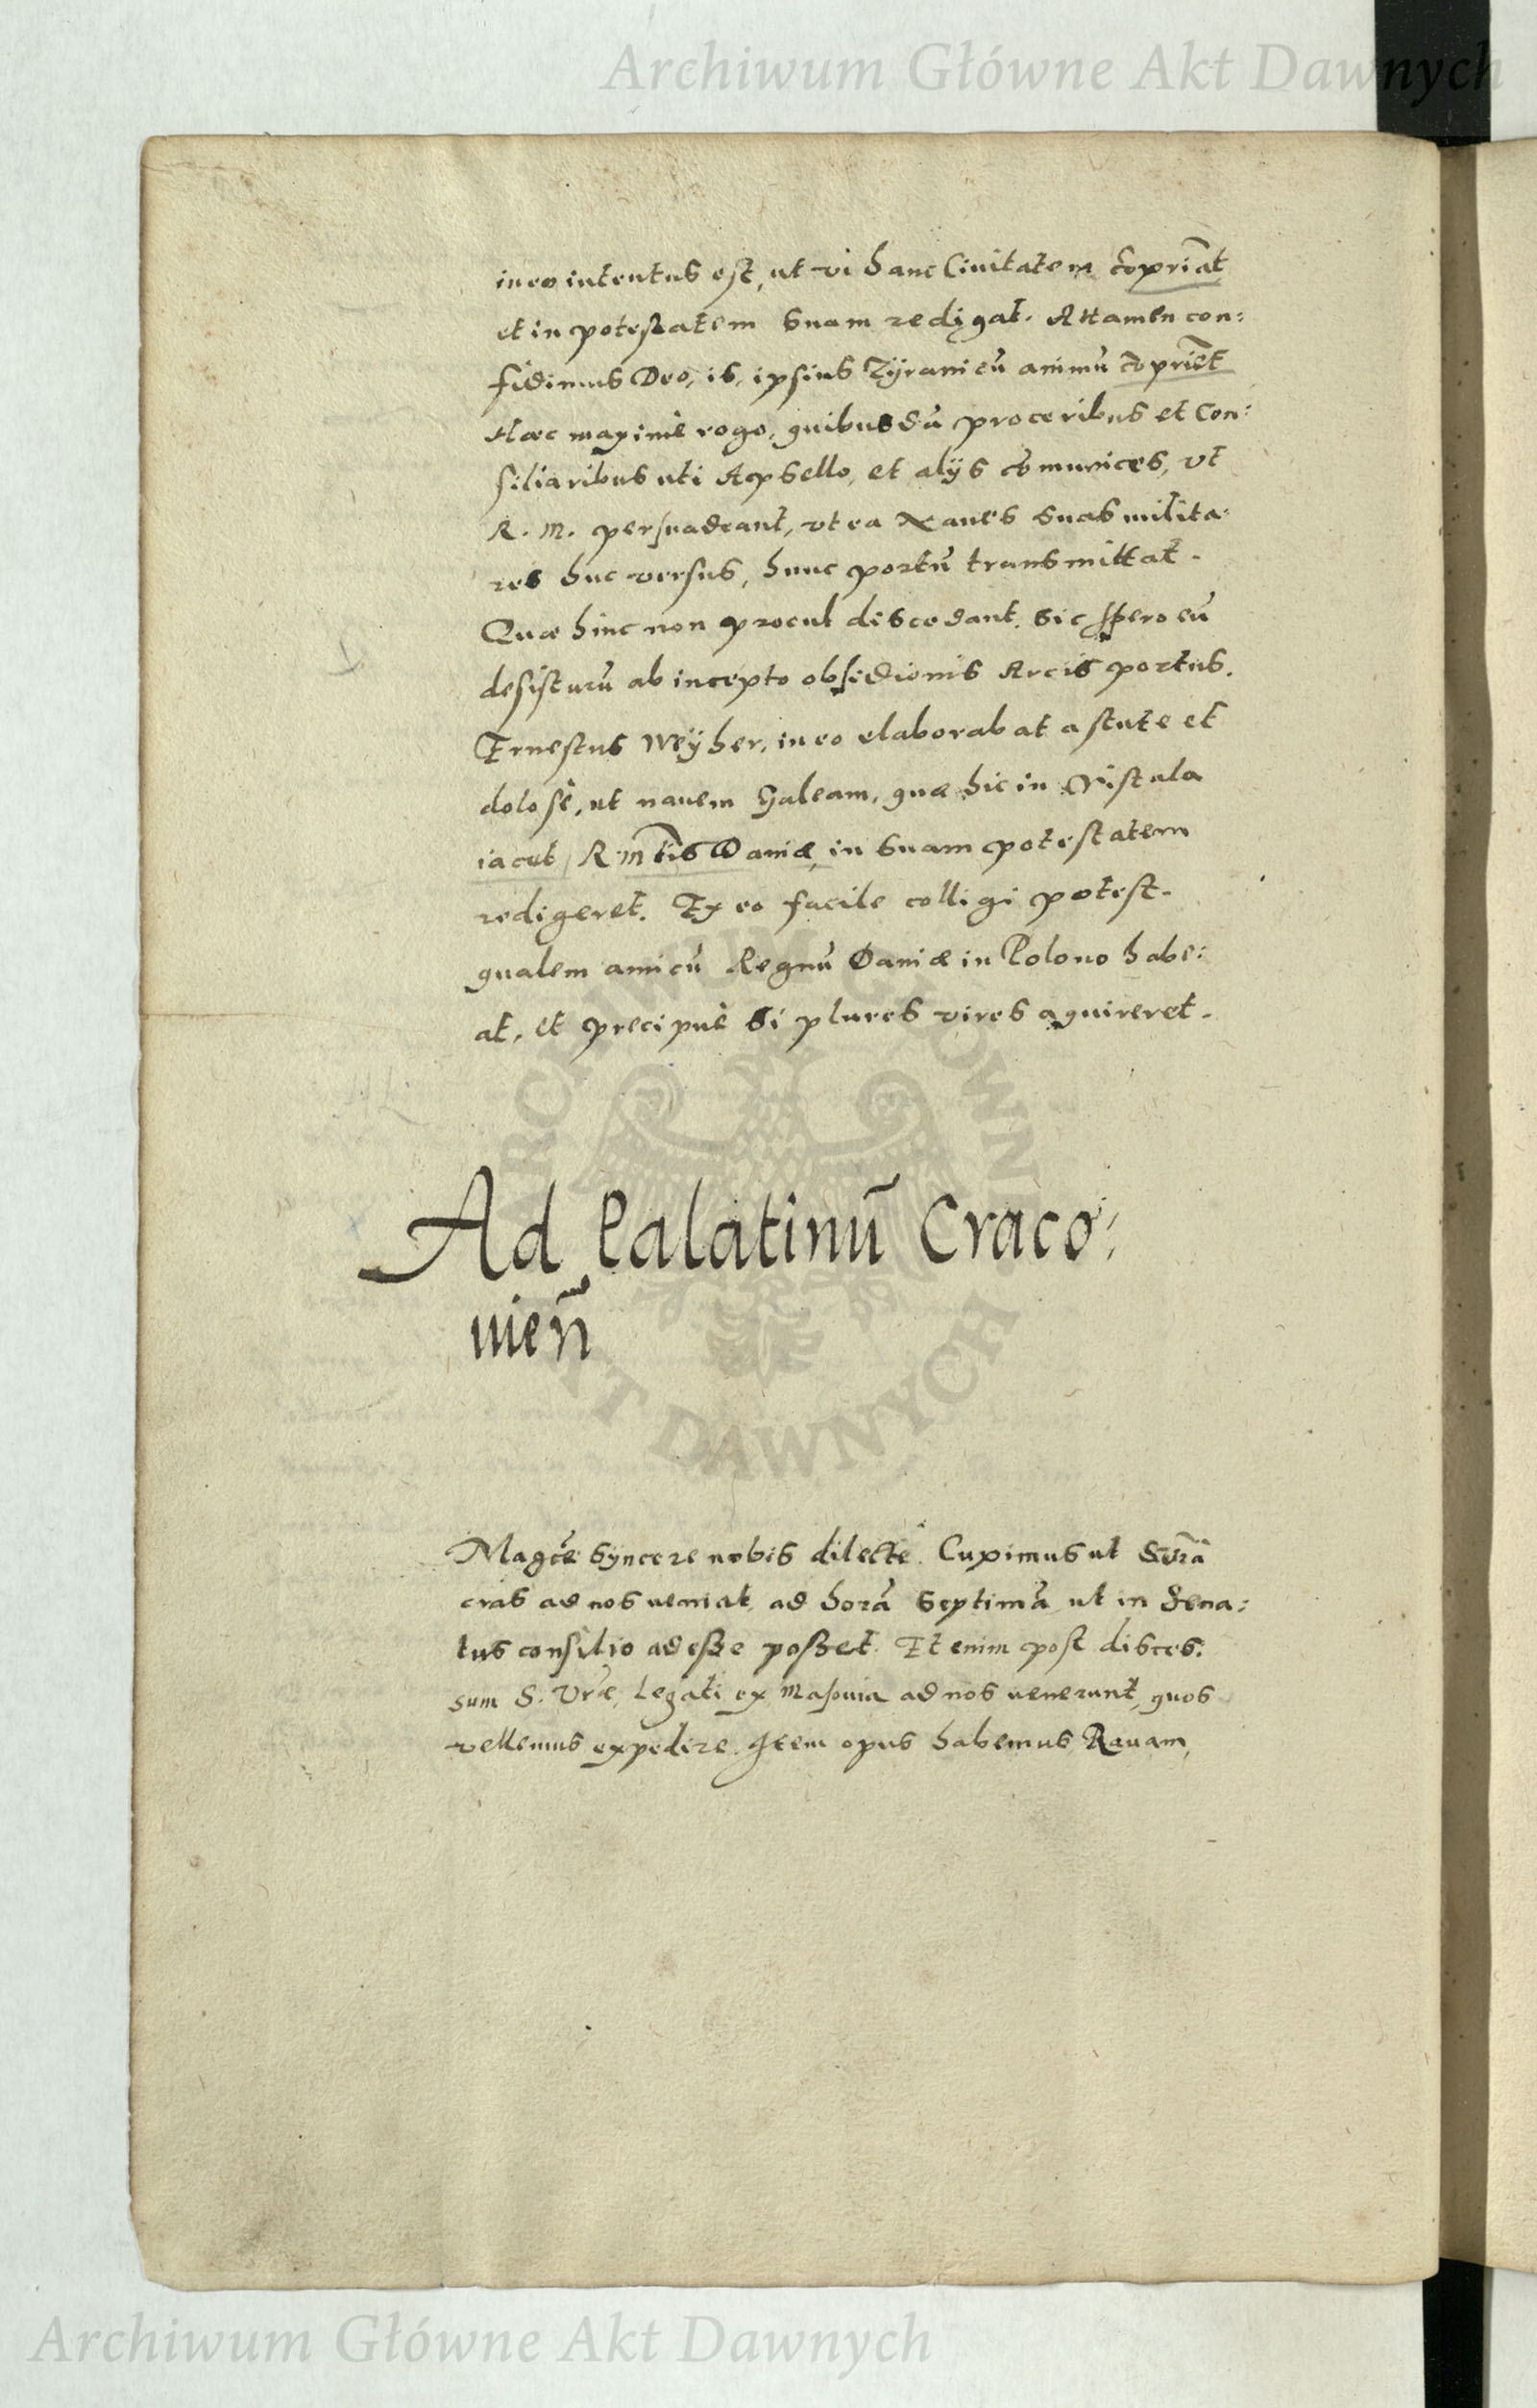 Archiwum Główne Akt Dawnych
in eo intentus est, ut vi hanc Ciuitatem cōpriāt
et in potestatem suam redigat. Attamen con:
fidimus Deo, is, ipsius Tÿranicū animū cōpriēt
Haec maximè rogo, quibusdā proceribus et Con:
siliaribus uti Apsello, et alÿs cōmunices, vt
R. M. persuadeant, vt ea Naues suas milita:
res huc versus, hunc portū transmittat.
Quae hinc non procul discedant. Sic spero eū
desisturū ab incepto obsidionis Arcis portus.
Ernestus Weÿher, in eo elaborabat astute et
dolosè, ut nauem Galeam, quae hic in Vistula
iacet, R. Mtis Daniae, in suam potestatem
redigeret. Ex eo facile colligi potest.
qualem amicū Regnū Daniae in Polono habe:
at, et precipuè si plures vires aquireret.
Ad Palatinū Craco:
uień
Magcē syncere nobis dilecte. Cupimus ut S. vrā
cras ad nos ueniat, ad horā septimā, ut in Sena:
tus consilio adesse posset. Etenim post disces:
sum S. Vrae, Legati ex Masouia ad nos uenerunt, quos
vellemus expedire. Item opus habemus Rauam,
ARCHIWUM GŁÓWNE AKT DAWNYCH
Archiwum Główne Akt Dawnych